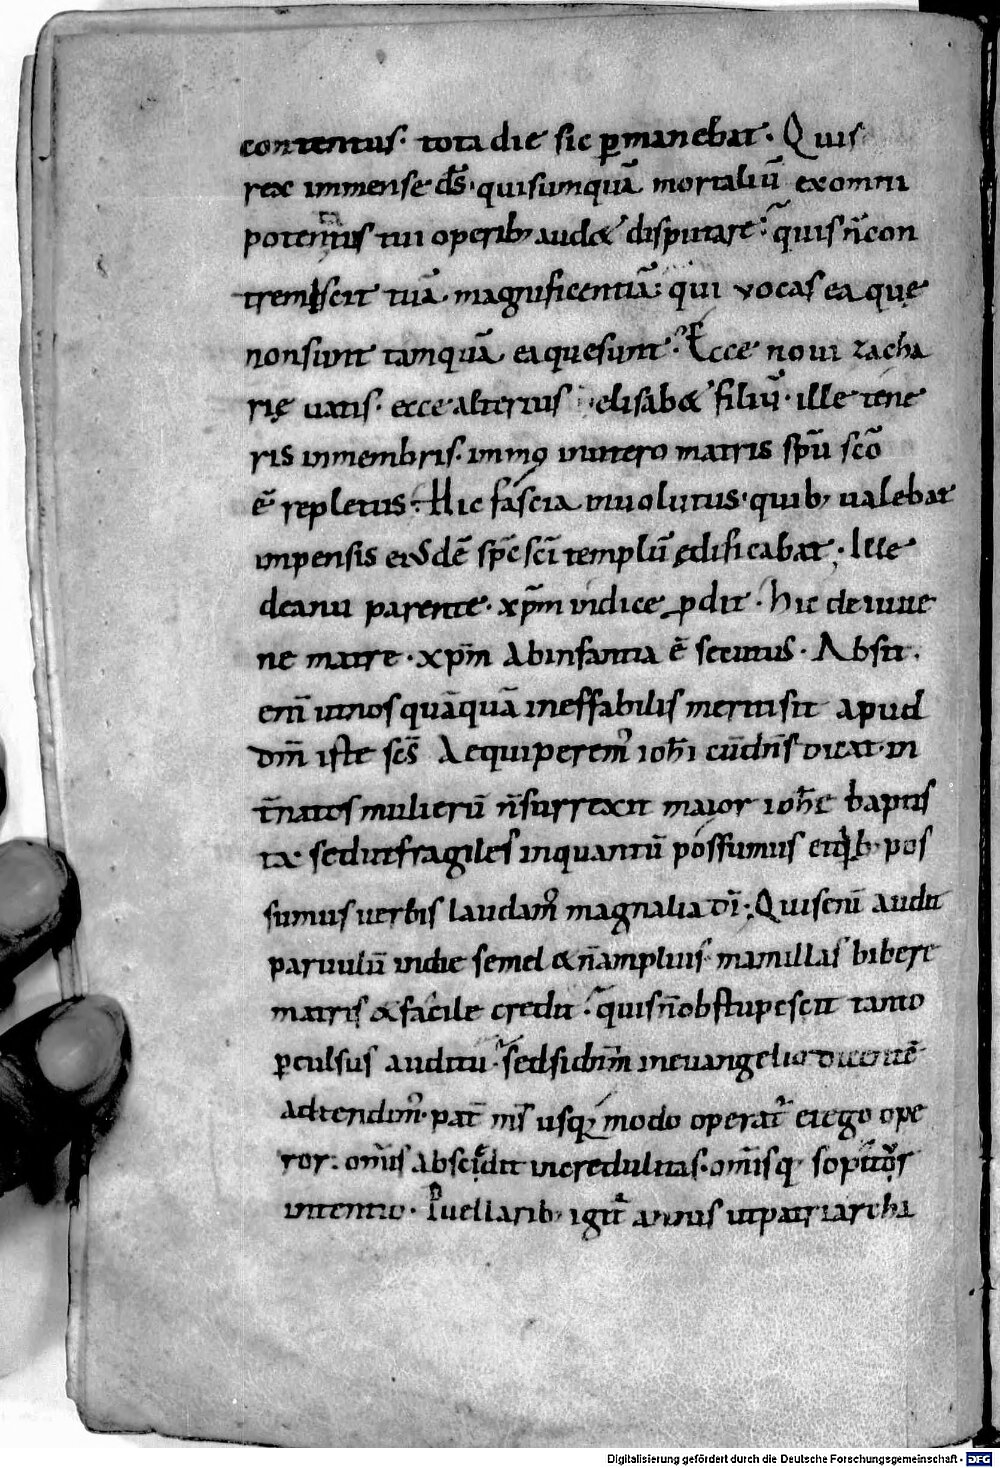 contentus· tota die sic p̄manebat· Quis
rex immense ds̄· quisumquā mortaliū exomni
potentius tui operib; audet disputare· quis n̄ con
tremiscit tuā· magnificentiā· qui vocas ea quę
nonsunt tamquā ea quesunt· Ecce novi zacha
rię vatis· ecce alterius elisabet filiū· ille tene
ris inmembris· immo inutero matris spū scō
ē repletus· Hic fascia involutus· quib; ualebat
inpensis eiusdē spc̄ sci templū ędificabat· Ille
deanu parente· xpm̄ indice pdit· Hic de iuue
ne matre· xpm̄ Abinfantia ē secutus· Absit
eni̅ utnos quāquā ineffabilis meritisit apud
dm̄ iste scs̄ Aequiperem᷒ ioh̄i cūdn̄s dicat· in
t̄natos mulierū n̄surrexit maior ioh̄e baptis
ta· sedutfragiles inquantū possumus etq̇b; pos
sumus uerbis laudam᷒ magnalia dī· Quiseni̅ audit
paruulū indie semel & n̄amplius mamillas bibere
matris & facile credit· quisn̄obstupescit tanto
p̄culsus auditu· sedsidnm̄ ineuangelio dicentē
adtendim᷒· pat̄ ms̄ usq; modo operat᷒ etego ope
ror: om̄is abscidit incredulitas· om̄isq; sopitur
intentio· Puellarib; igit᷒ annis utpatriarcha
Digitalisierung gefördert durch die Deutsche Forschungsgemeinschaft - DFG